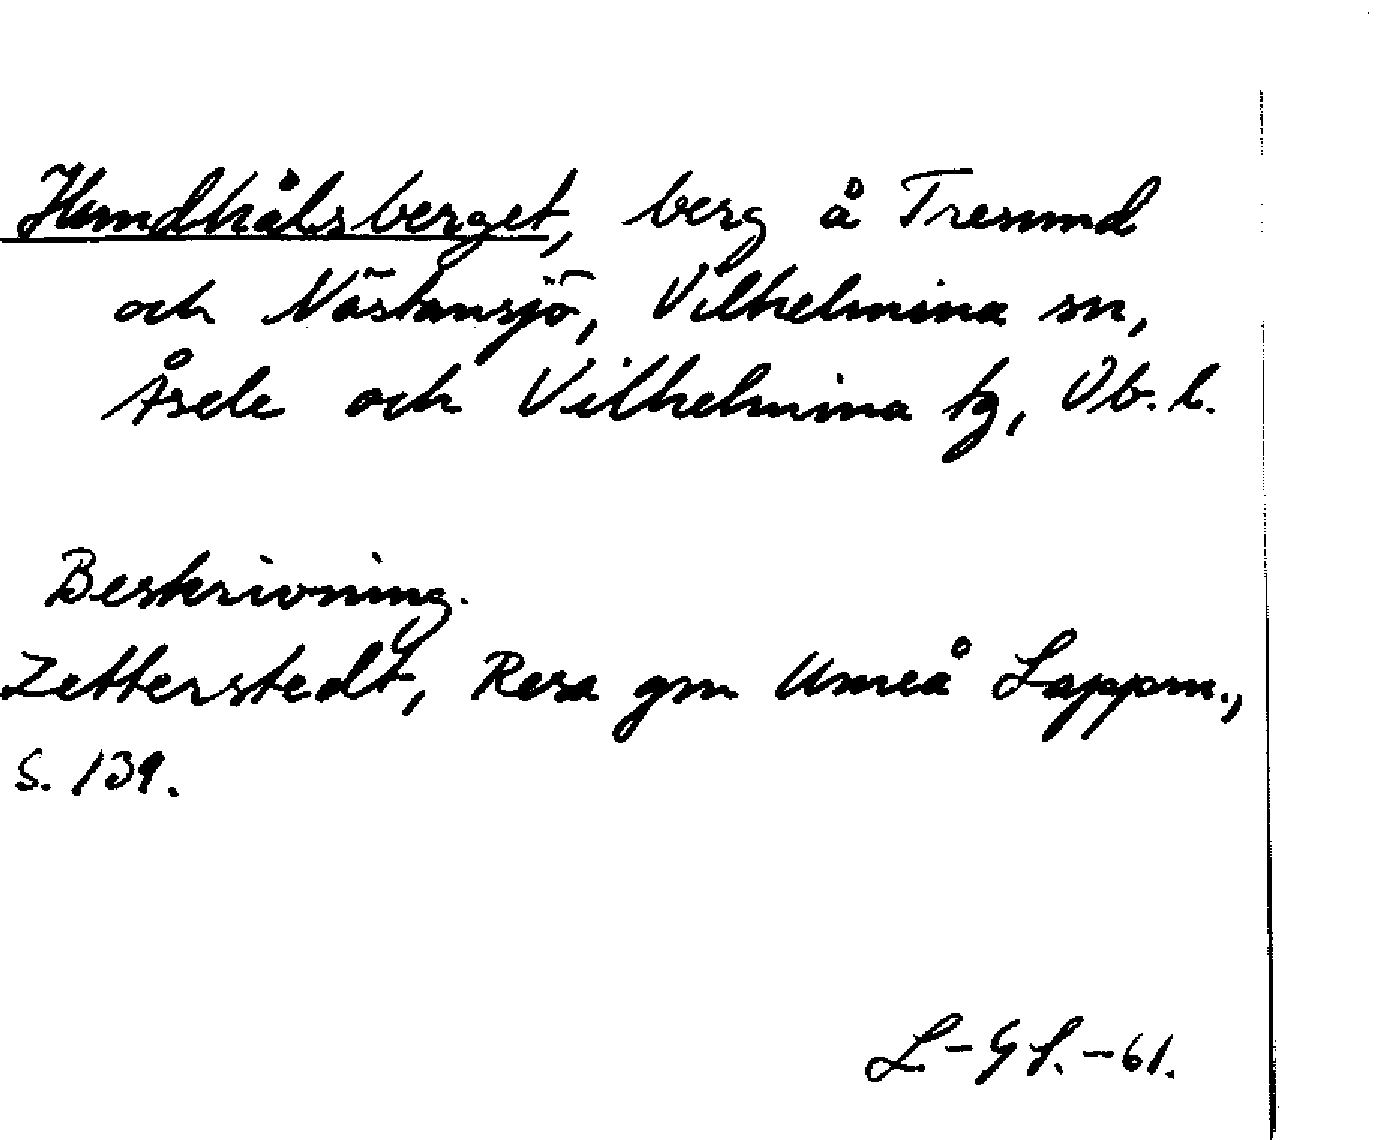 Hundhålsberget, berg å Tresund
och Nästansjö, Vilhelmina sn,
Åsele och Vilhelmina tg, Vb. l.
Beskrivning.
Zetterstedt, Resa gm Umeå Lappm.,
S. 139.
L-GL.-61.